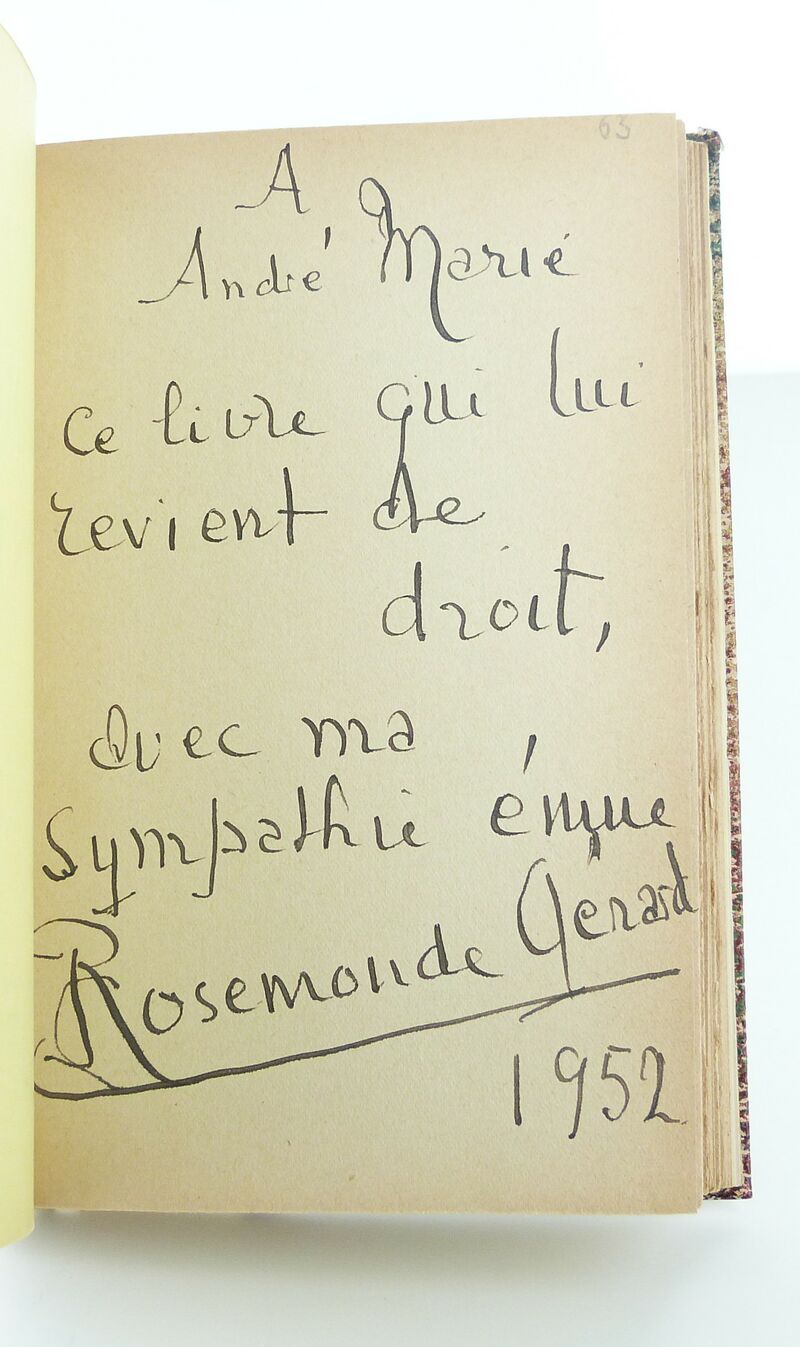 65
A
André Marie
Ce livre qui lui
revient de
droit,
avec ma
sympathie émue
Rosemonde Gérard
1952